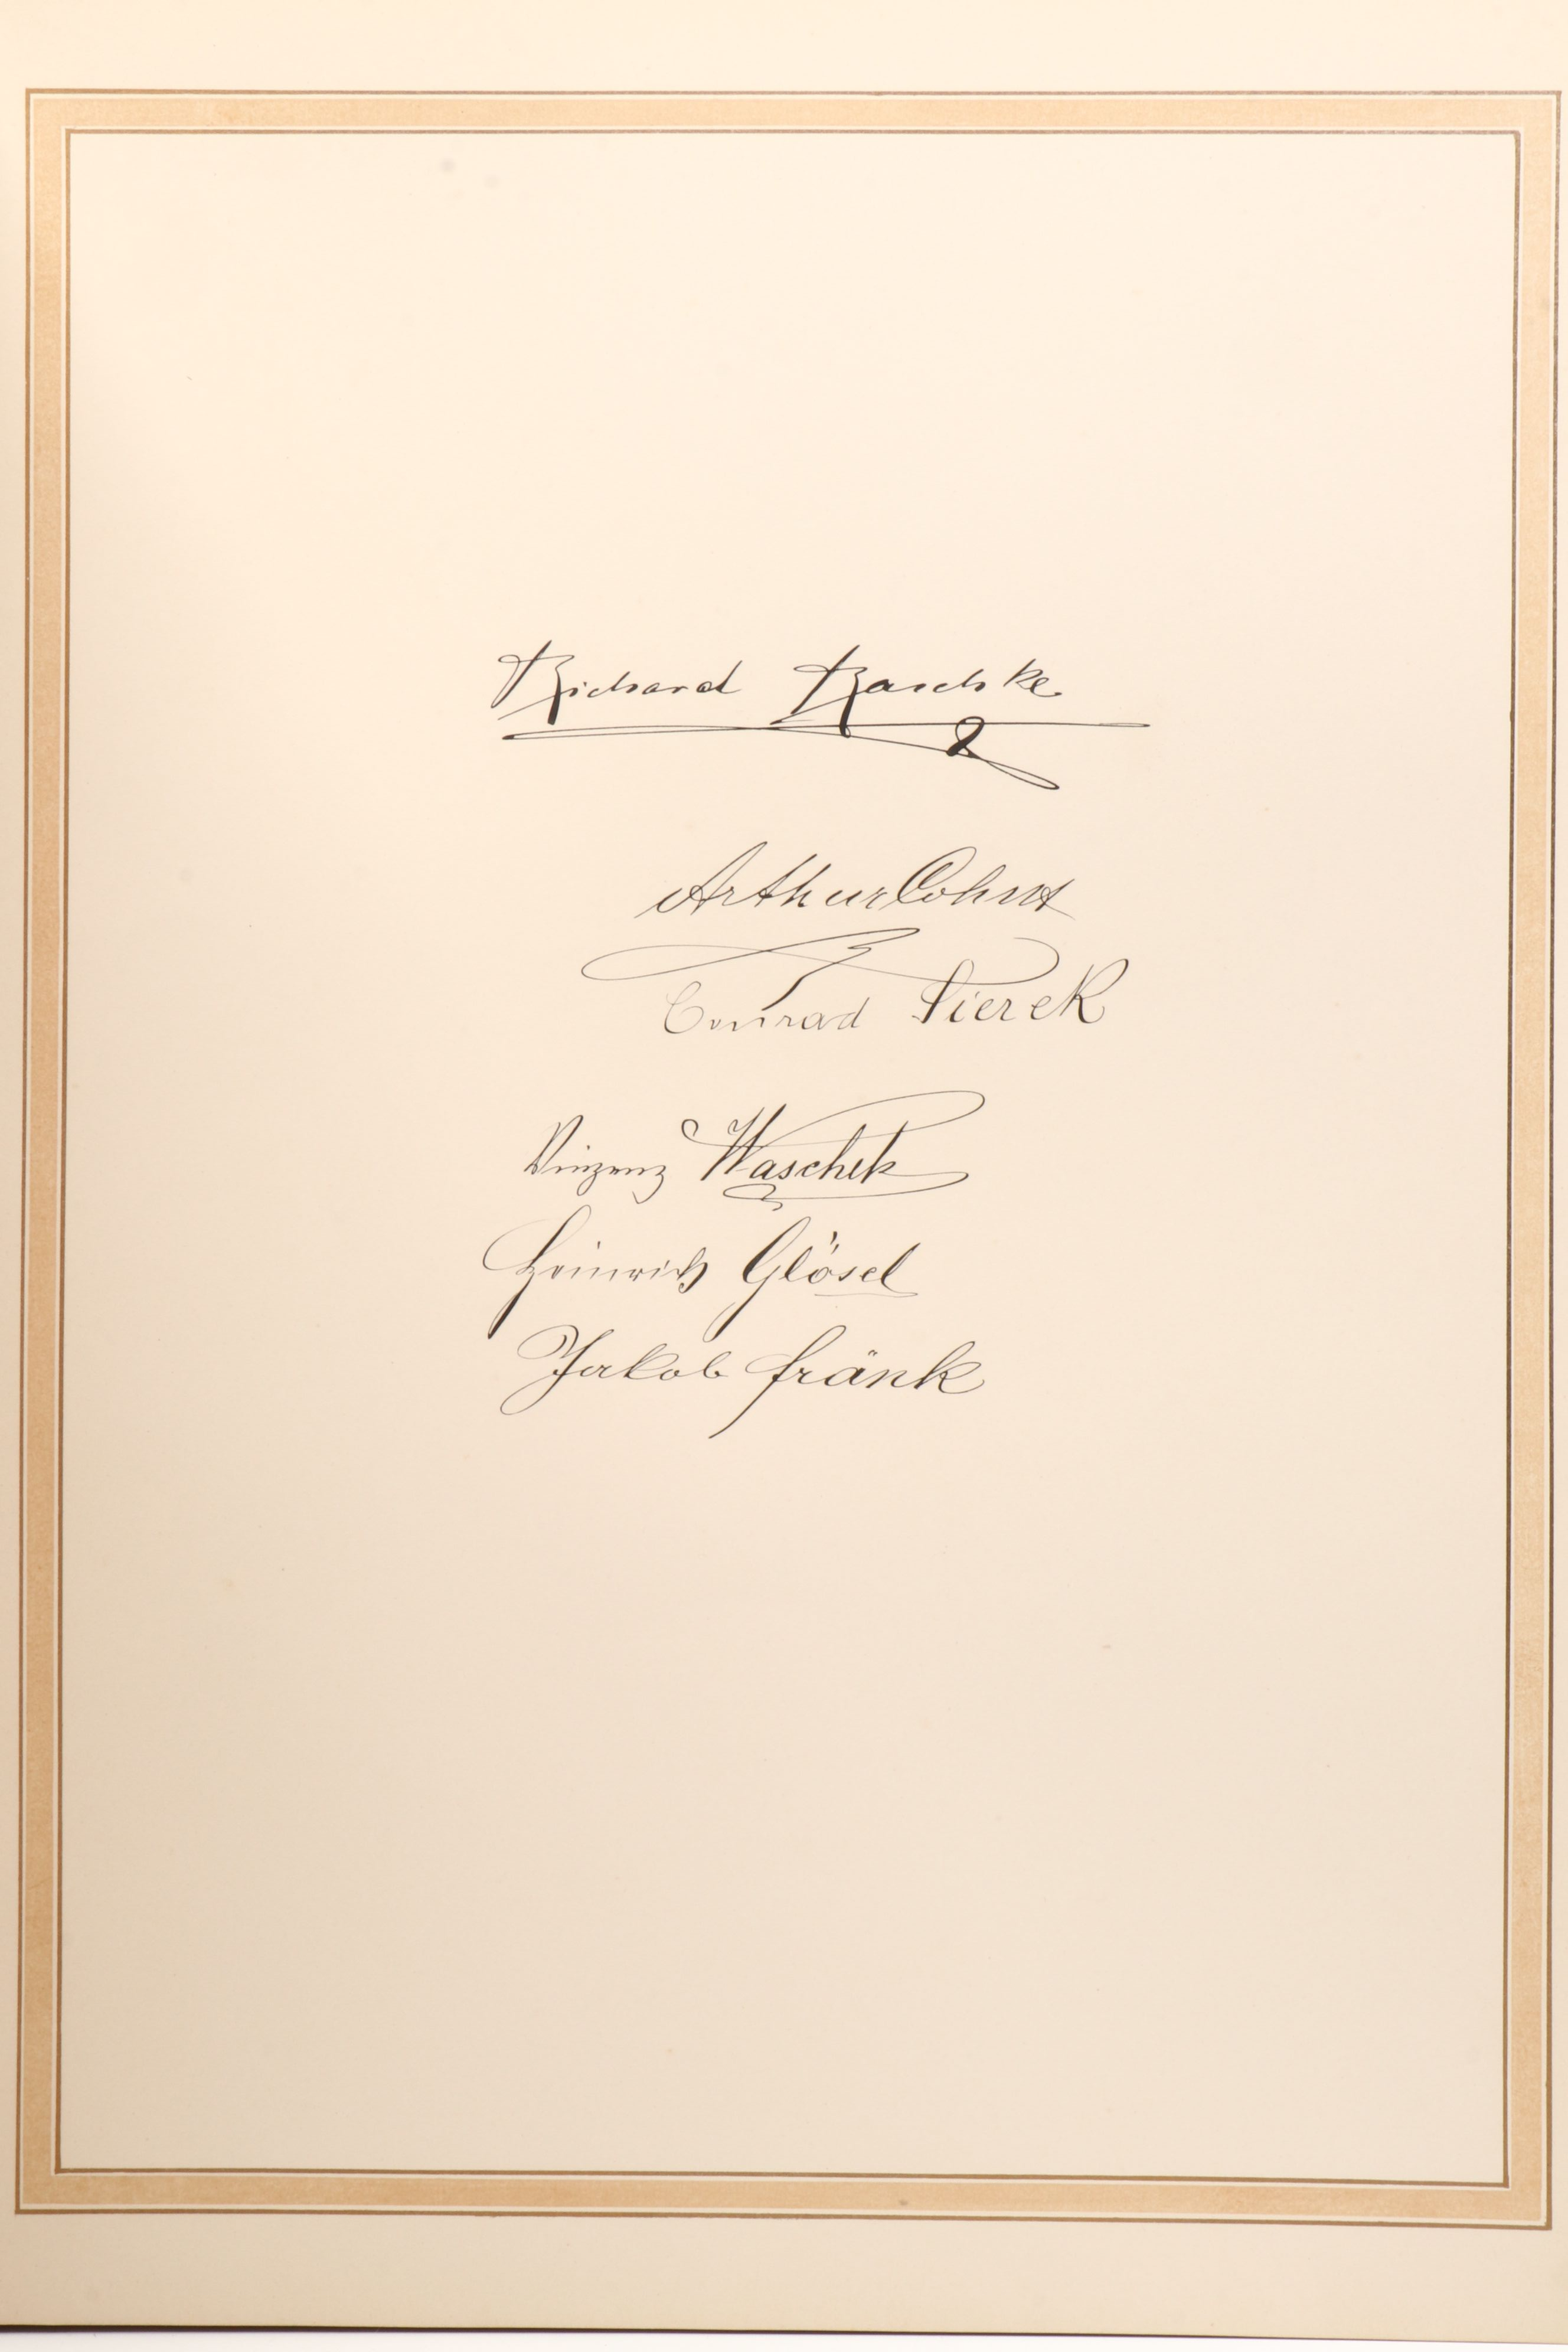 Richard Raschke
Arthur Cohnt
Conrad Tierek
Vinzenz Waschek
Heinrich Glösel
Jakob Fränk